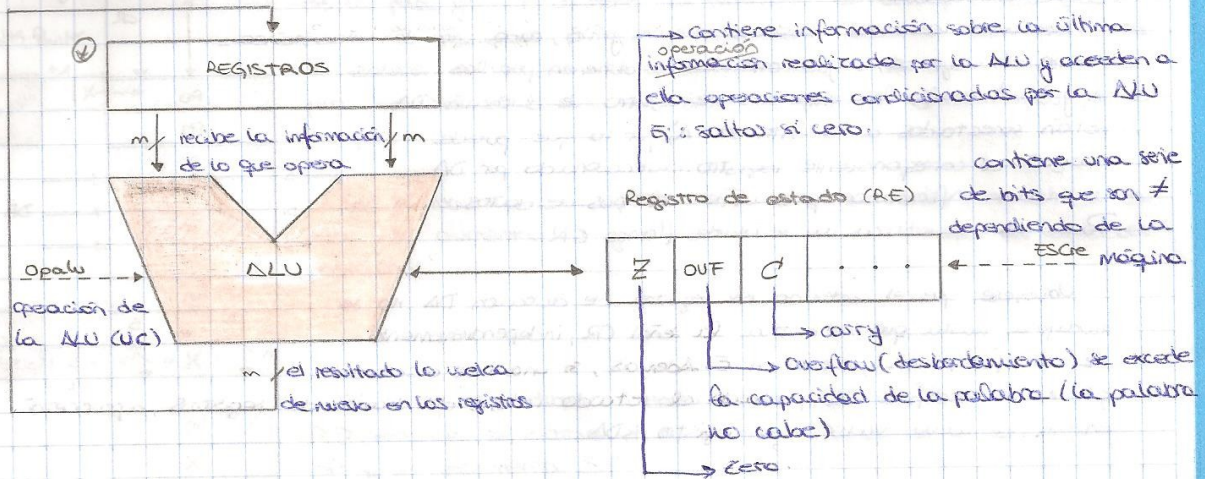 REGISTROS
m recibe la información m
de lo que opera
ALU
opalu
operación de
la ALU (UC)
m el resultado lo vuelca
de nuevo en los registros
Contiene información sobre la última
operación
información realizada por la ALU y acceden a
ella operaciones condicionadas por la ALU
Ej: saltar si cero.
contiene una serie
de bits que son ≠
dependiendo de la
máquina
Registro de estado (RE)
Z OUF C . . .
ESCre
carry
Overflow (desbordamiento) se excede
la capacidad de la palabra (la palabra
no cabe)
zero